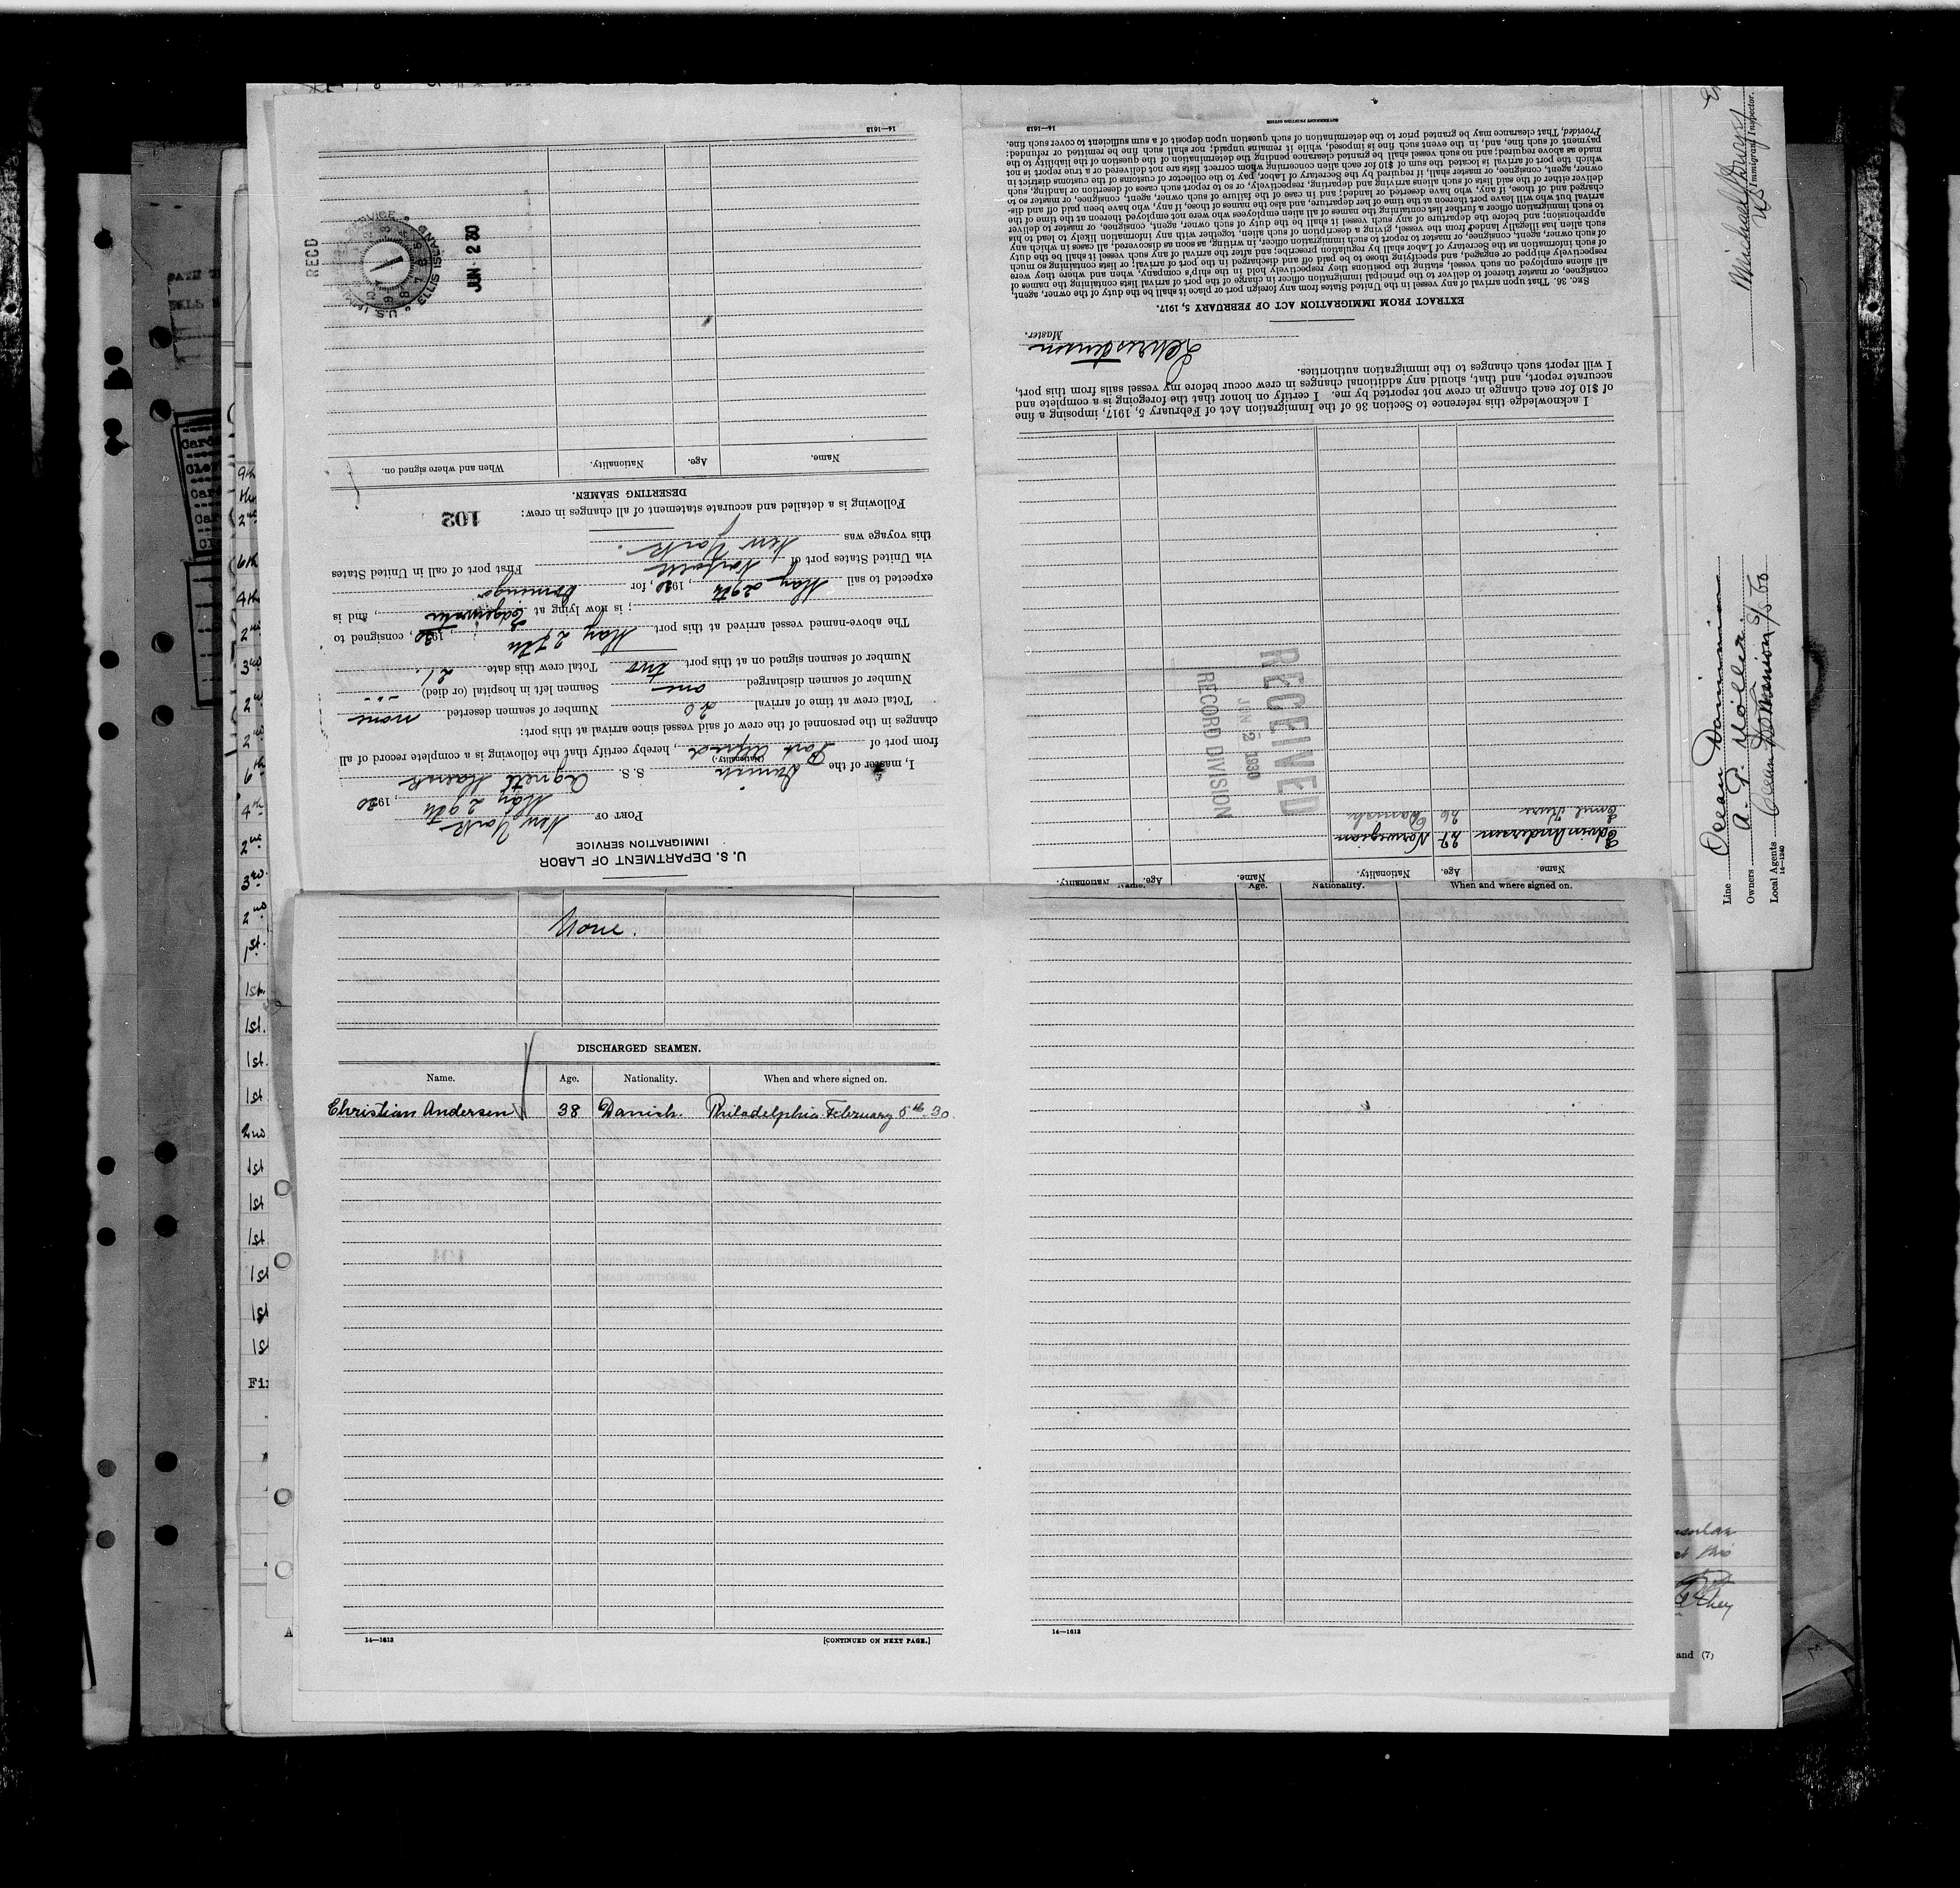 U. S. DEPARTMENT OF LABOR
IMMIGRATION SERVICE
PORT OF New York
May 29th, 1930
I, master of the Danish S. S. Agnete Maersk
(Nationality)
from port of Port Alfred, hereby certify that the following is a complete record of all
changes in the personnel of the crew of said vessel since arrival at this port:
Total crew at time of arrival 20 Number of seamen deserted none
Number of seamen discharged one Seamen left in hospital (or died) ---
Number of seamen signed on at this port two Total crew this date 21.
The above-named vessel arrived at this port May 27th, 1930, consigned to
; is now lying at Edgewater, and is
expected to sail May 29th, 1930, for Domingo
via United States port of Norfolk First port of call in United States
this voyage was New York.
Following is a detailed and accurate statement of all changes in crew:
102
DESERTING SEAMEN.
Name. Age. Nationality. When and where signed on.
RECD
U.S. IMM SERVICE ELLIS ISLAND
JUN 2 30
14—1613
Name. Age. Nationality. Name. Age. Nationality.
Edwin Andersen 27 Norwegian
Emil Kure 26 Danish
RECEIVED
JUN 2 1930
RECORD DIVISION
I acknowledge this reference to Section 36 of the Immigration Act of February 5, 1917, imposing a fine
of $10 for each change in crew not reported by me. I certify on honor that the foregoing is a complete and
accurate report, and that, should any additional changes in crew occur before my vessel sails from this port,
I will report such changes to the immigration authorities.
Master.
EXTRACT FROM IMMIGRATION ACT OF FEBRUARY 5, 1917.
SEC. 36. That upon arrival of any vessel in the United States from any foreign port or place it shall be the duty of the owner, agent,
consignee, or master thereof to deliver to the principal immigration officer in charge of the port of arrival lists containing the names of
all aliens employed on such vessel, stating the positions they respectively hold in the ship's company, when and where they were
respectively shipped or engaged, and specifying those to be paid off and discharged in the port of arrival; or lists containing so much
of such information as the Secretary of Labor shall by regulation prescribe; and after the arrival of any such vessel it shall be the duty
of such owner, agent, consignee, or master to report to such immigration officer, in writing, as soon as discovered, all cases in which any
such alien has illegally landed from the vessel, giving a description of such alien, together with any information likely to lead to his
apprehension; and before the departure of any such vessel it shall be the duty of such owner, agent, consignee, or master to deliver
to such immigration officer a further list containing the names of all alien employees who were not employed thereon at the time of the
arrival but who will leave port thereon at the time of her departure, and also the names of those, if any, who have been paid off and dis-
charged and of those, if any, who have deserted or landed; and in case of the failure of such owner, agent, consignee, or master so to
deliver either of the said lists of such aliens arriving and departing, respectively, or so to report such cases of desertion or landing, such
owner, agent, consignee, or master shall, if required by the Secretary of Labor, pay to the collector of customs of the customs district in
which the port of arrival is located the sum of $10 for each alien concerning whom correct lists are not delivered or a true report is not
made as above required; and no such vessel shall be granted clearance pending the determination of the question of the liability to the
payment of such fine, and, in the event such fine is imposed, while it remains unpaid; nor shall such fine be remitted or refunded:
Provided, That clearance may be granted prior to the determination of such question upon deposit of a sum sufficient to cover such fine.
14—1613
GOVERNMENT PRINTING OFFICE
None.
DISCHARGED SEAMEN.
Name. Age. Nationality. When and where signed on.
Christian Andersen 38 Danish. Philadelphia February 5th-30
14—1613
[CONTINUED ON NEXT PAGE.]
Name. Age. Nationality. When and where signed on.
14—1613
Line Ocean Dominion
Owners A. P. Möller.
Local Agents Ocean Dominion S/S Co
14—1240
Immigrant Inspector.
9th
2nd
6th
4th
2nd
3rd
2nd
2nd
6th
4th
2nd
3rd
2nd
1st.
1st.
1st.
1st.
1st
2nd
1st
1st
1st
1st
1st
1st
and (7)